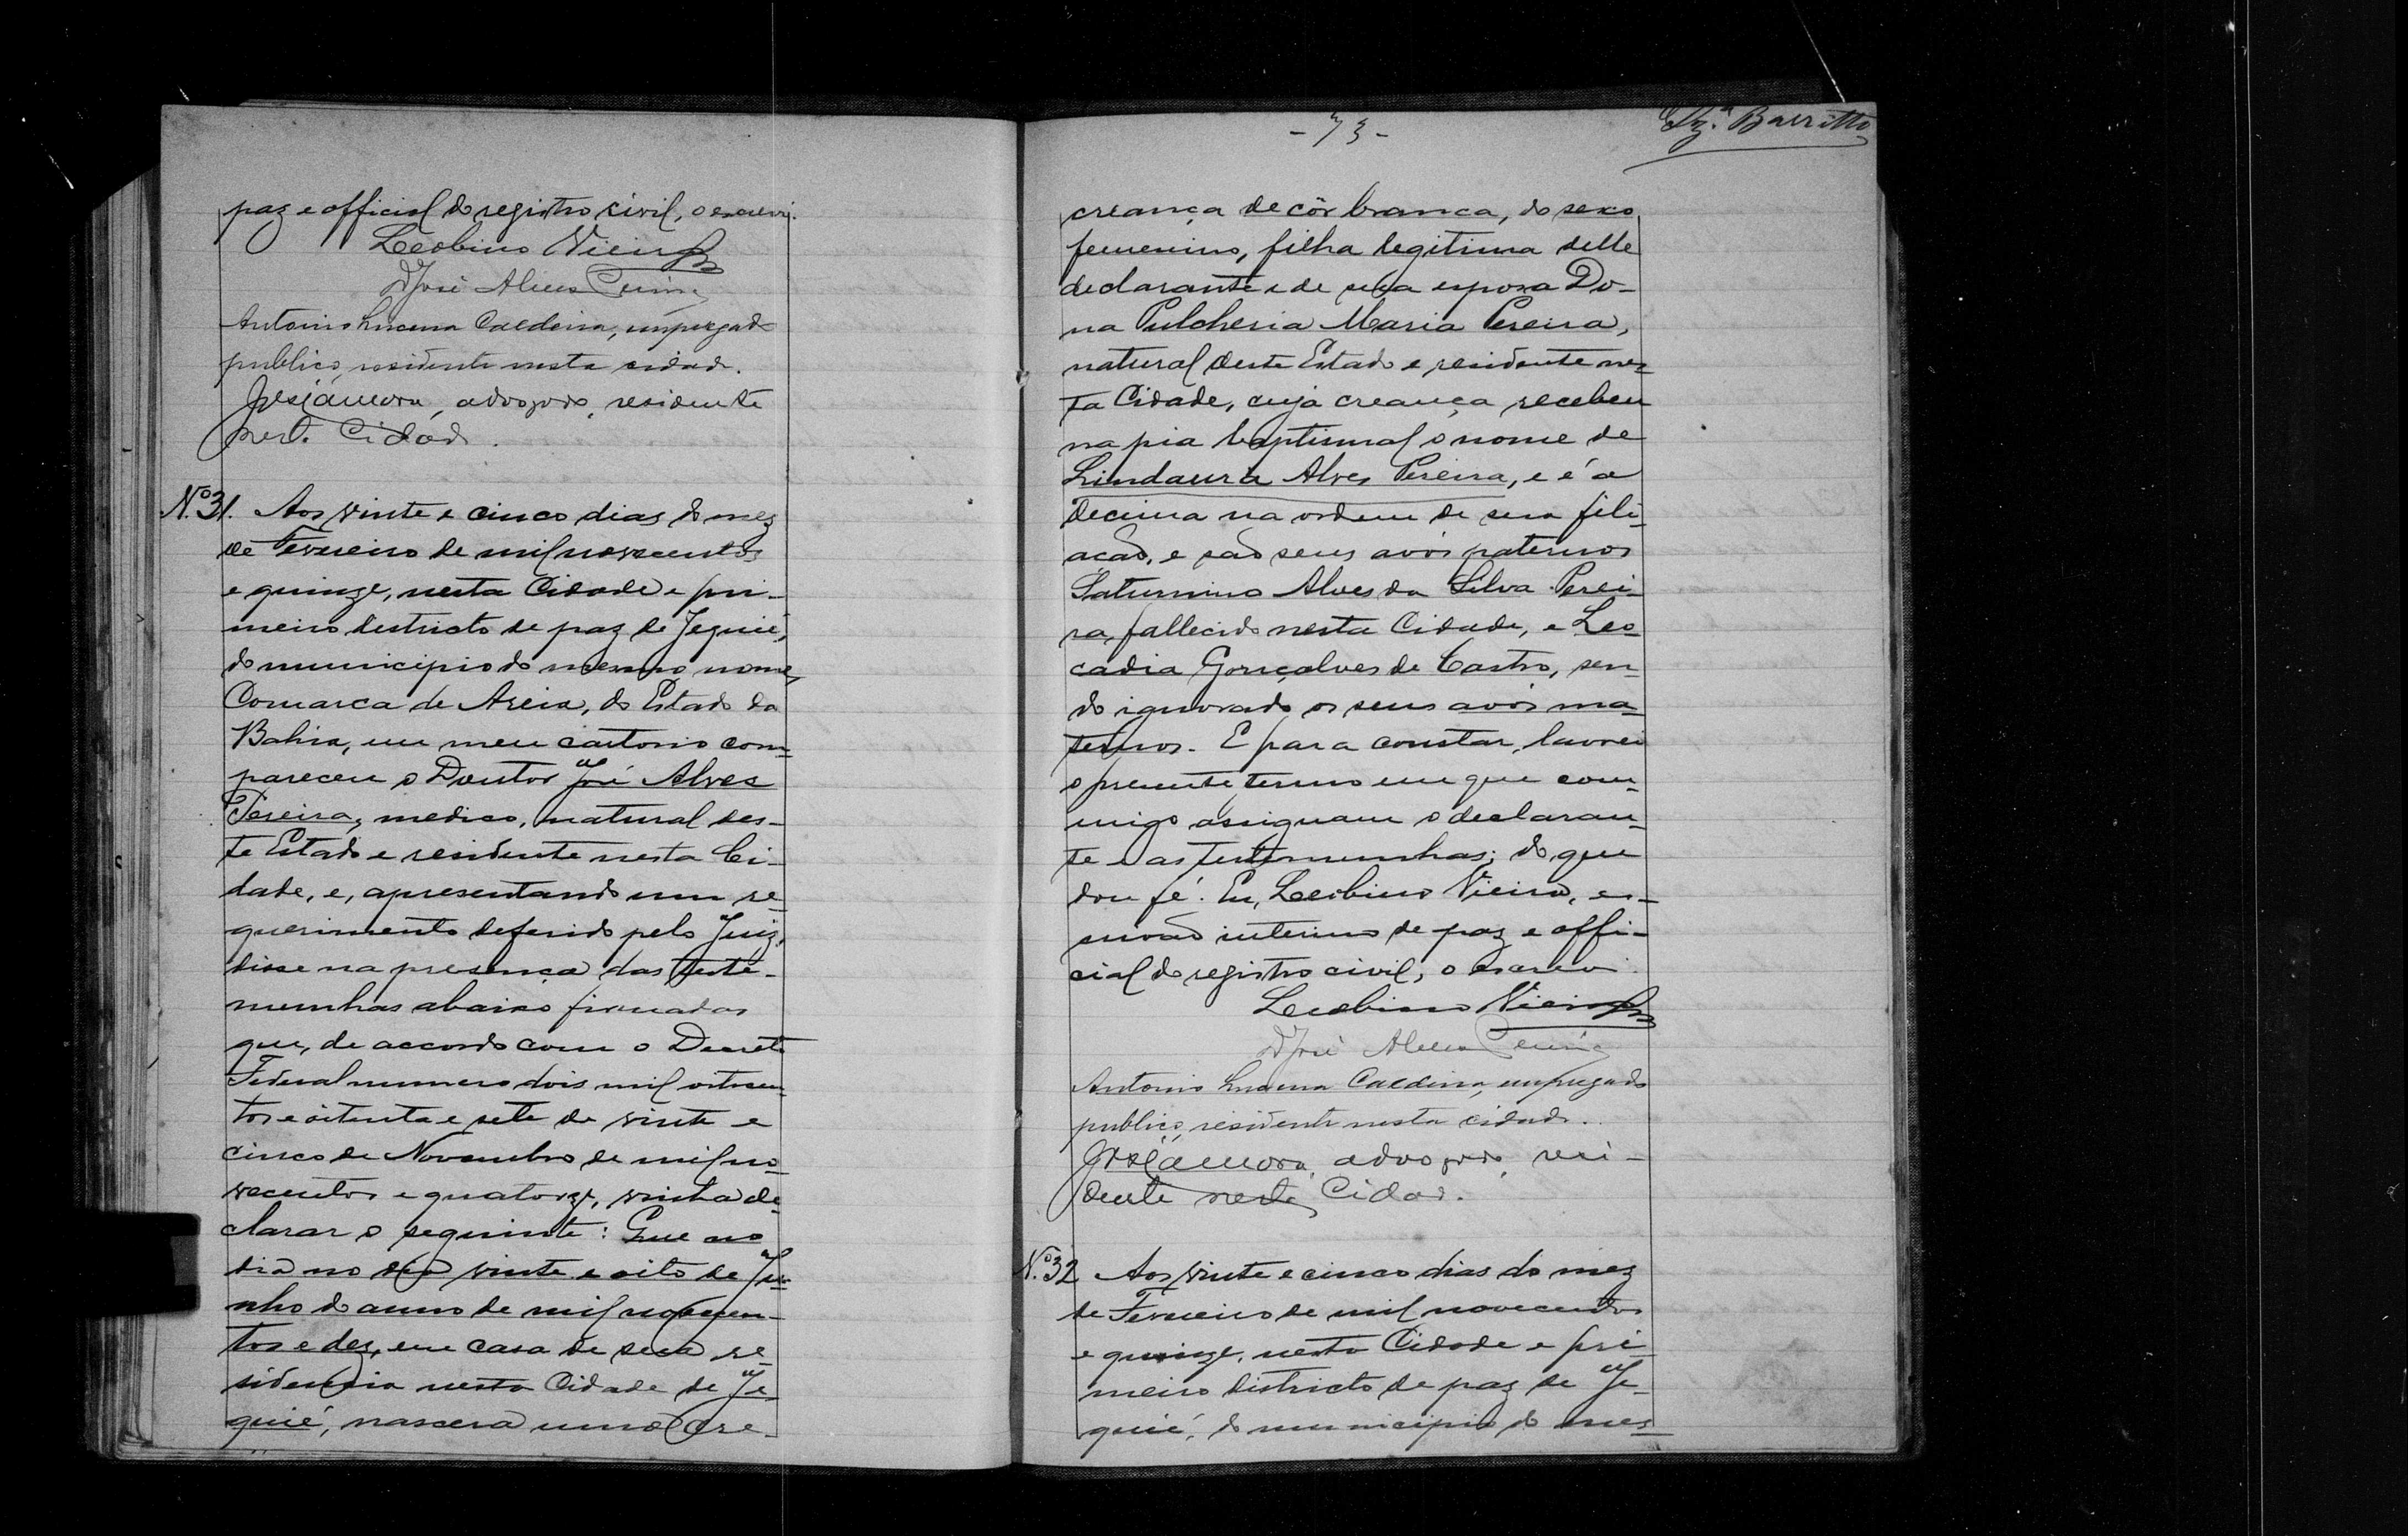 paz e official do registro civil, o escrevi.
Leobino Vieira
Dr José Alves Pereira
Antonio Lucena Caldeira, empregado
publico, residente nesta cidade.
advogado, residente
nesta Cidade.
N.º 31. Aos vinte e cinco dias do mez
de Fevereiro de mil novecentos
e quinze, nesta Cidade e pri-
meiro districto de paz de Jequié,
do municipio do mesmo nome,
Comarca de Areia, do Estado da
Bahia, em meu cartorio com-
pareceu o Doutor José Alves
Pereira, medico, natural des-
te Estado e residente nesta Ci-
dade, e, apresentando um re-
querimento deferido pelo Juiz,
disse na presença das teste-
munhas abaixo firmadas
que, de accordo com o Decreto
Federal numero dois mil oitocen-
tos e oitenta e sete de vinte e
cinco de Novembro de mil no-
vecentos e quatorze, vinha de-
clarar o seguinte: Que no
dia no dia vinte e oito de Ju-
nho do anno de mil novecen-
tos e dez, em casa de sua re-
sidencia nesta Cidade de Je-
quié, nascera uma cre-
- 73 -
Barretto
creança de côr branca, do sexo
femenino, filha legitima delle
declarante e de sua esposa Do-
na Pulcheria Maria Pereira,
natural deste Estado e residente nes-
ta Cidade, cuja creança recebeu
na pia baptismal o nome de
Lindaura Alves Pereira, e é a
decima na ordem de sua fili-
ação, e são seus avós paternos
Saturnino Alves da Silva Perei-
ra, fallecido nesta Cidade, e Leo-
cadia Gonçalves de Castro, sen-
do ignorado os seus avós ma-
ternos. E para constar, lavrei
o presente termo em que com-
migo assignam o declaran-
te e as testemunhas; do que
dou fé. Eu, Leobino Vieira, es-
crivão interino de paz e offi-
cial do registro civil, o escrevi.
Leobino Vieira
Dr José Alves Pereira
Antonio Lucena Caldeira, empregado
publico, residente nesta cidade.
advogado, resi-
dente nesta Cidade.
N.º 32 Aos vinte e cinco dias do mez
de Fevereiro de mil novecentos
e quinze, nesta Cidade e pri-
meiro districto de paz de Je-
quié, do municipio do mes-